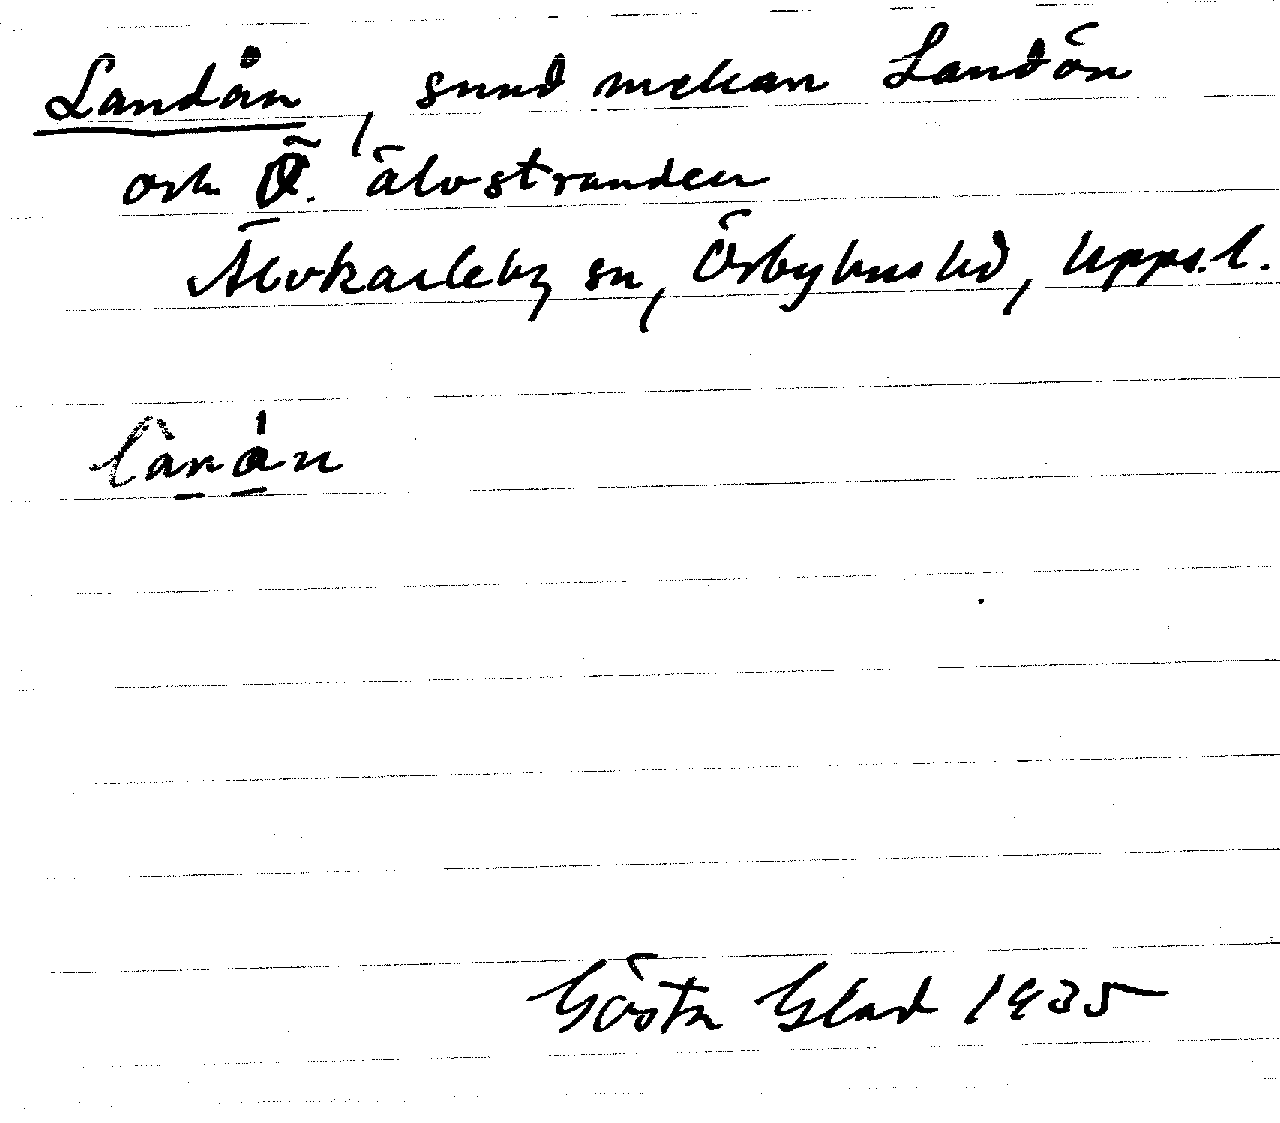 Landån, sund mellan Landön
och Ö. älvstranden
Älvkarleby sn, Örbyhus hd, Upps.l.
lànán
Gösta Glad 1935